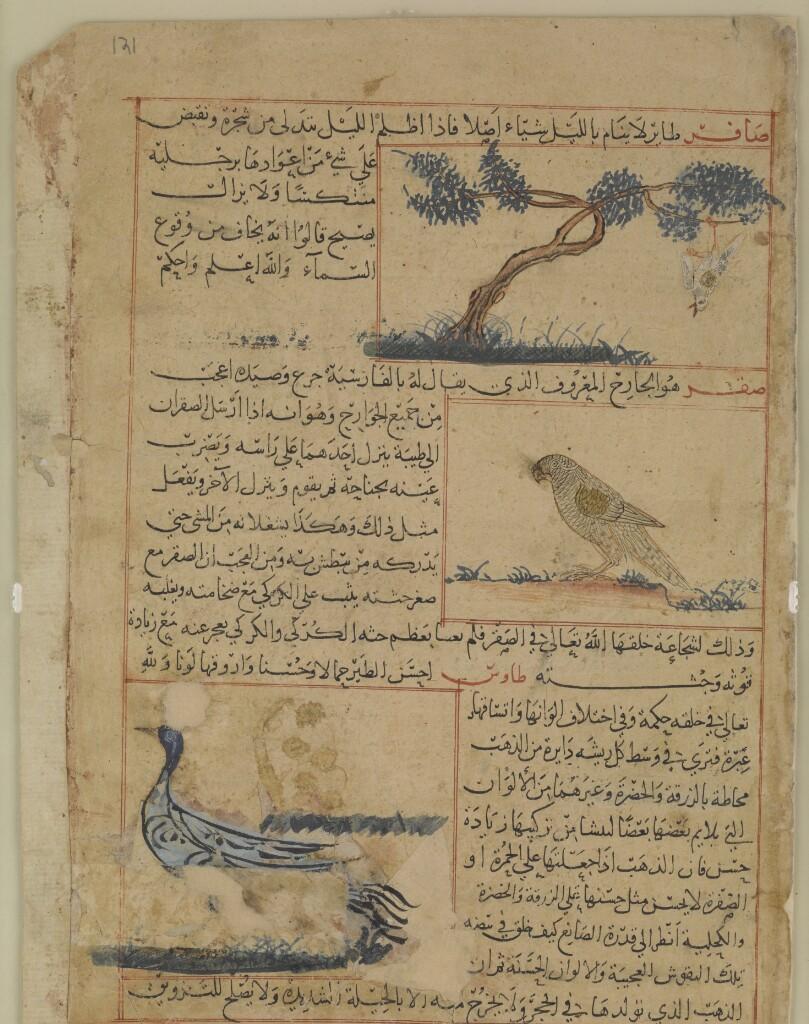 ١٣١
صافر طاير لا ينام بالليل شياء اصلا فاذا اظلم الليل تدلى من شجرة ويقبض
على شيء من اعوادها برجليه
منتكسا ولا يزال
يصيح قالوا انه يخاف من وقوع
السماء والله اعلم واحكم
صقر هو الجارح المعروف الذي يقال له بالفارسية جرع وصيده اعجب
من جميع الجوارح وهو انه اذا ارسل الصقران
الى طيبة ينزل احدهما على راسه ويضرب
عينه بجناحه ثم يقوم وينزل الآخر ويفعل
مثل ذلك وهكذا يشغلانه من المشي حتى
يدركه من يبطش به ومن العجب ان الصقر مع
صغر جثته يثب على الكركي مع ضخامته ويغلبه
وذلك لشجاعة خلقها الله تعالى في الصقر فلم بعظم جثة الكركي والكركي يعجز عنه مع زيادة
قوته وجثته طاوس احسن الطير جمالا وحسنا وادوقها لونا ولله
تعالى في خلقه حكمة وفي اختلاف الوانها واتساقها
عبرة فترى في وسط كل ريشه دايرة من الذهب
محاطة بالزرقة والخضرة وغيرهما من الالوان
التي يلايم بعضها بعضا لينشا من تركيبها زيادة
حسن فان الذهب اذا جعلتها على الحمرة او
الصفرة لا يحسن مثل حسنها على الزرقة والخضرة
والكحلية انظر الى قدرة الصانع كيف خلق في بيضه
تلك النقوش العجيبة والالوان الحسنة ثم ان
الذهب الذي تولدها في الحجر ولا يخرج منه الا بالحيلة الشديدة ولا يصلح للتزويق